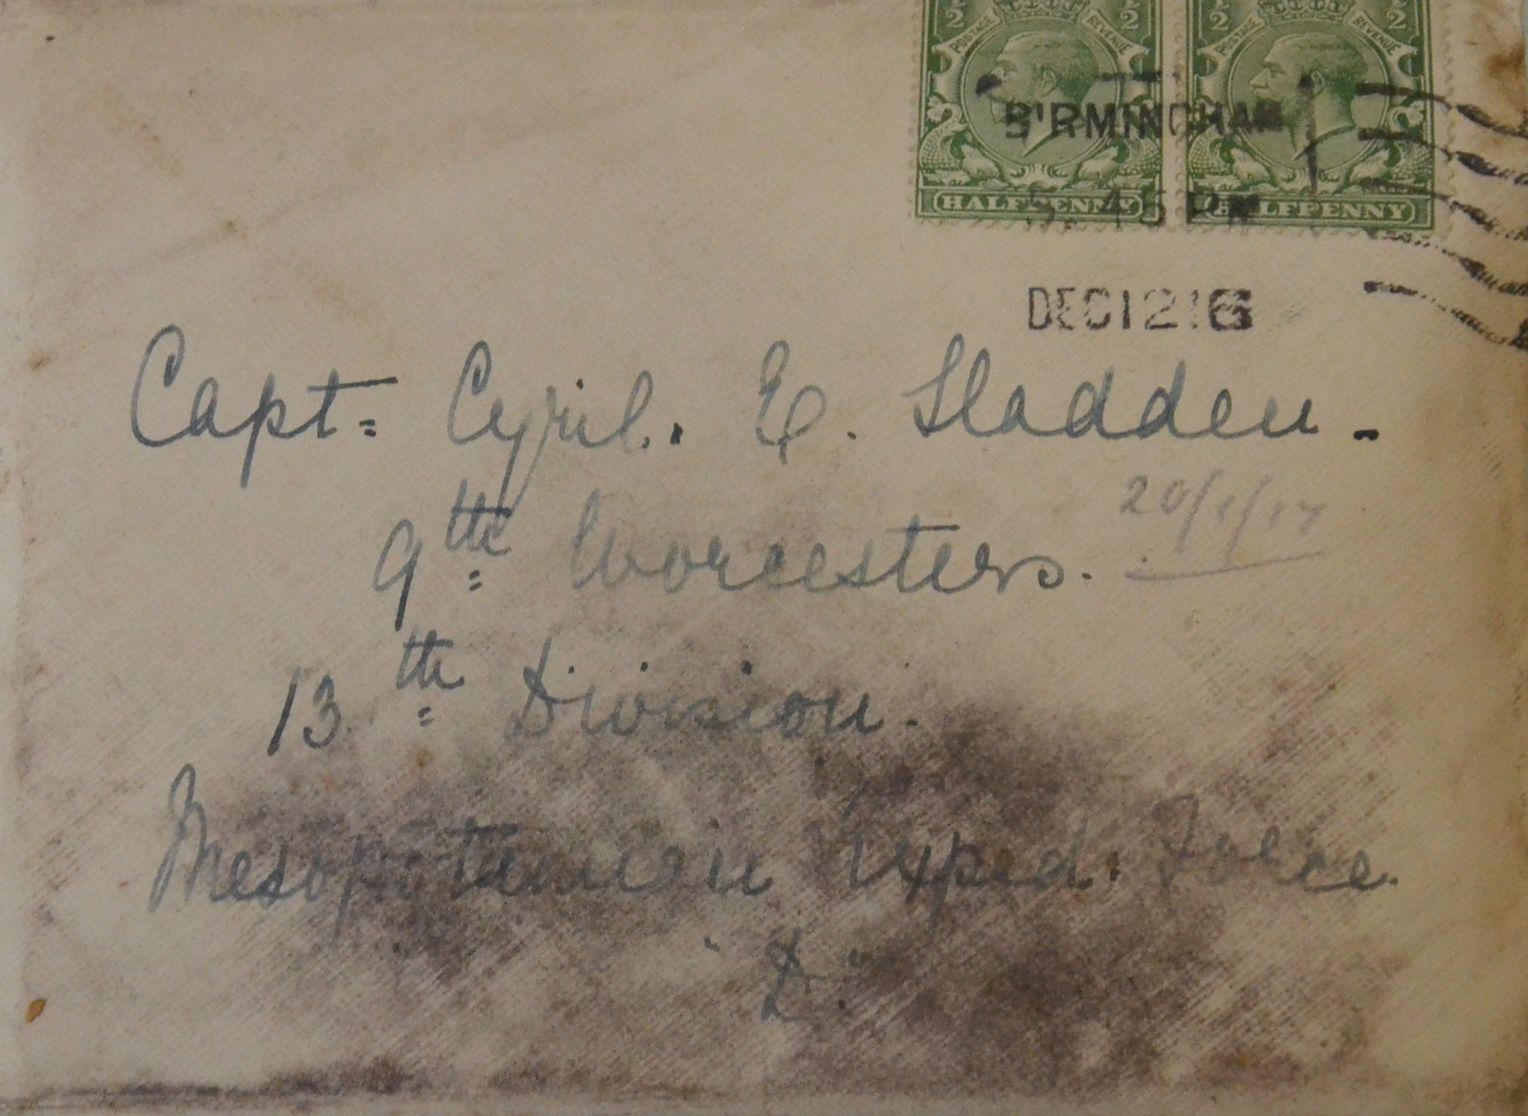 ½ ½ ½
POSTAGE REVENUE POSTAGE REVENUE
BIRMINGHAM
HALFPENNY HALFPENNY
5.45 PM
DEC 12 16
Capt= Cyril. E. Sladden.
20/1/17
9th= Worcesters.
13th= Division.
Mesopotamian Exped. Force
"D."